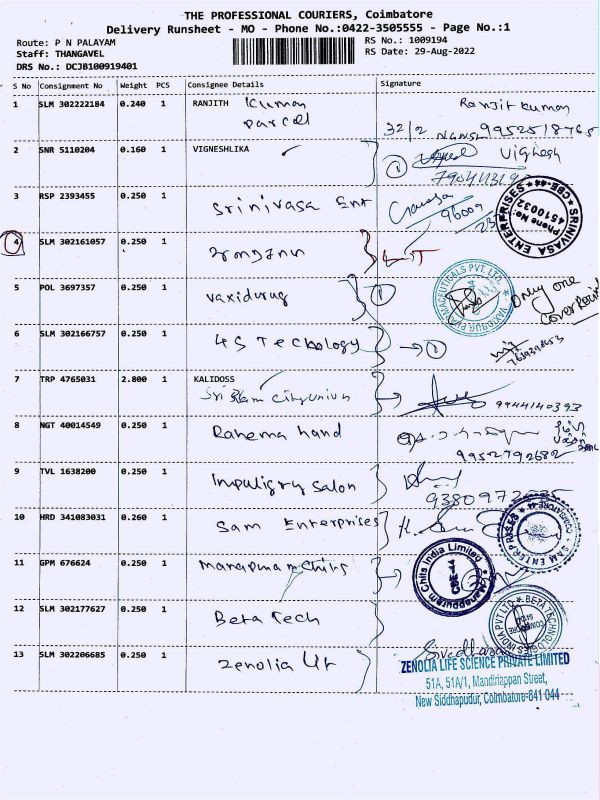 THE PROFESSIONAL COURIERS, Coimbatore
Delivery Runsheet - MO - Phone No.:0422-3505555 - Page No.:1
Route: P N PALAYAM
Staff: THANGAVEL
DRS No.: DCJB100919401
RS No.: 1009194
RS Date: 29-Aug-2022
S No Consignment No Weight PCS Consignee Details Signature
1 SLM 302222184 0.240 1 RANJITH Kumar Ranjit Kumar
parcel 32/2 9952518765
2 SNR 5110204 0.160 1 VIGNESHLIKA ① Vighesh
3 RSP 2393455 0.250 1 Srinivasa Ent 96009
SRINIVASA ENTERPRISES CBE-44
Phone No: 4510032
4 SLM 302161057 0.250 1
5 POL 3697357 0.250 1 vaxidrug ① Only one
cover
VAXIDRUG PHARMACEUTICALS PVT. LTD.
6 SLM 302166757 0.250 1 4S Techology ①
7 TRP 4765031 2.800 1 KALIDOSS
Sri Ram City Union 9944140393
8 NGT 40014549 0.250 1 Rahema hand
9952792682
9 TVL 1638200 0.250 1 Salon
10 HRD 341083031 0.260 1 Sam Enterprises
SAM ENTERPRISES COIMBATORE-44
11 GPM 676624 0.250 1 Manapuram Chits
Manappuram Chits India Limited
CBE-44
12 SLM 302177627 0.250 1 Beta Tech
BETA TECHNOLOGIES INDIA PVT LTD
COIMBATORE
13 SLM 302206685 0.250 1 Zenolia Life
ZENOLIA LIFE SCIENCE PRIVATE LIMITED
51A, 51A/1, Mandiriappan Street,
New Siddhapudur, Coimbatore-641 044